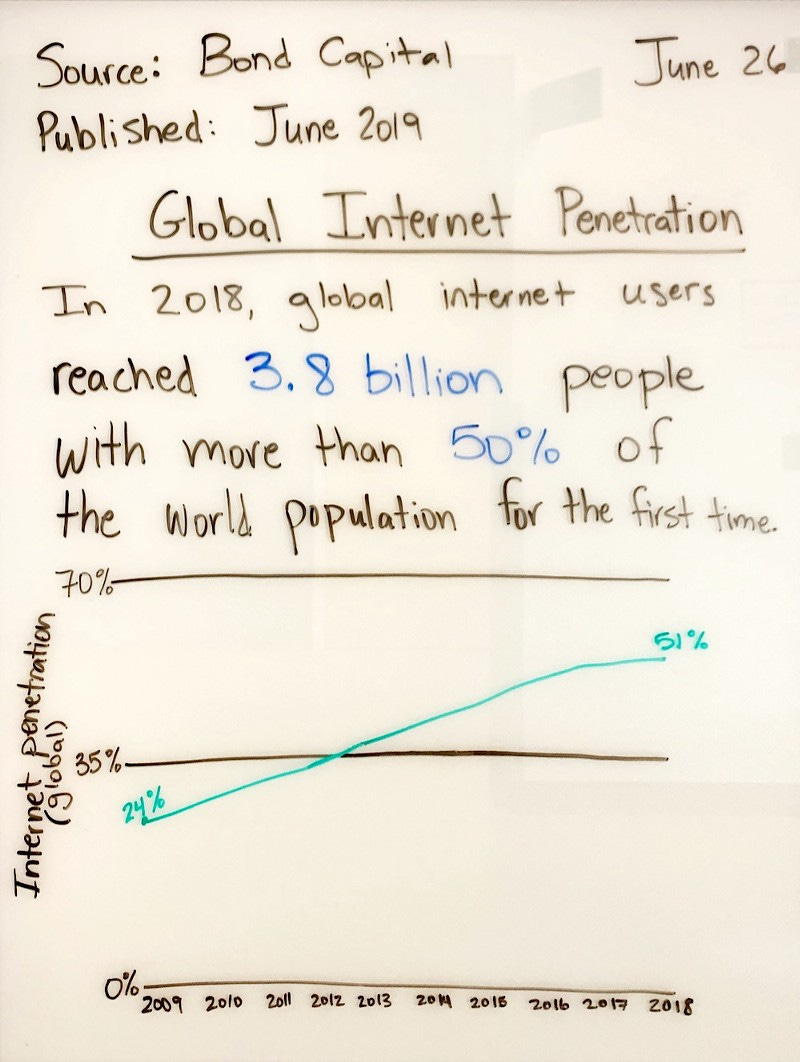 Source: Bond Capital
June 26
Published: June 2019
Global Internet Penetration
In 2018, global internet users
reached 3.8 billion people
with more than 50% of
the world population for the first time.
70%
51%
Internet penetration
(global)
35%
24%
0%
2009 2010 2011 2012 2013 2014 2015 2016 2017 2018